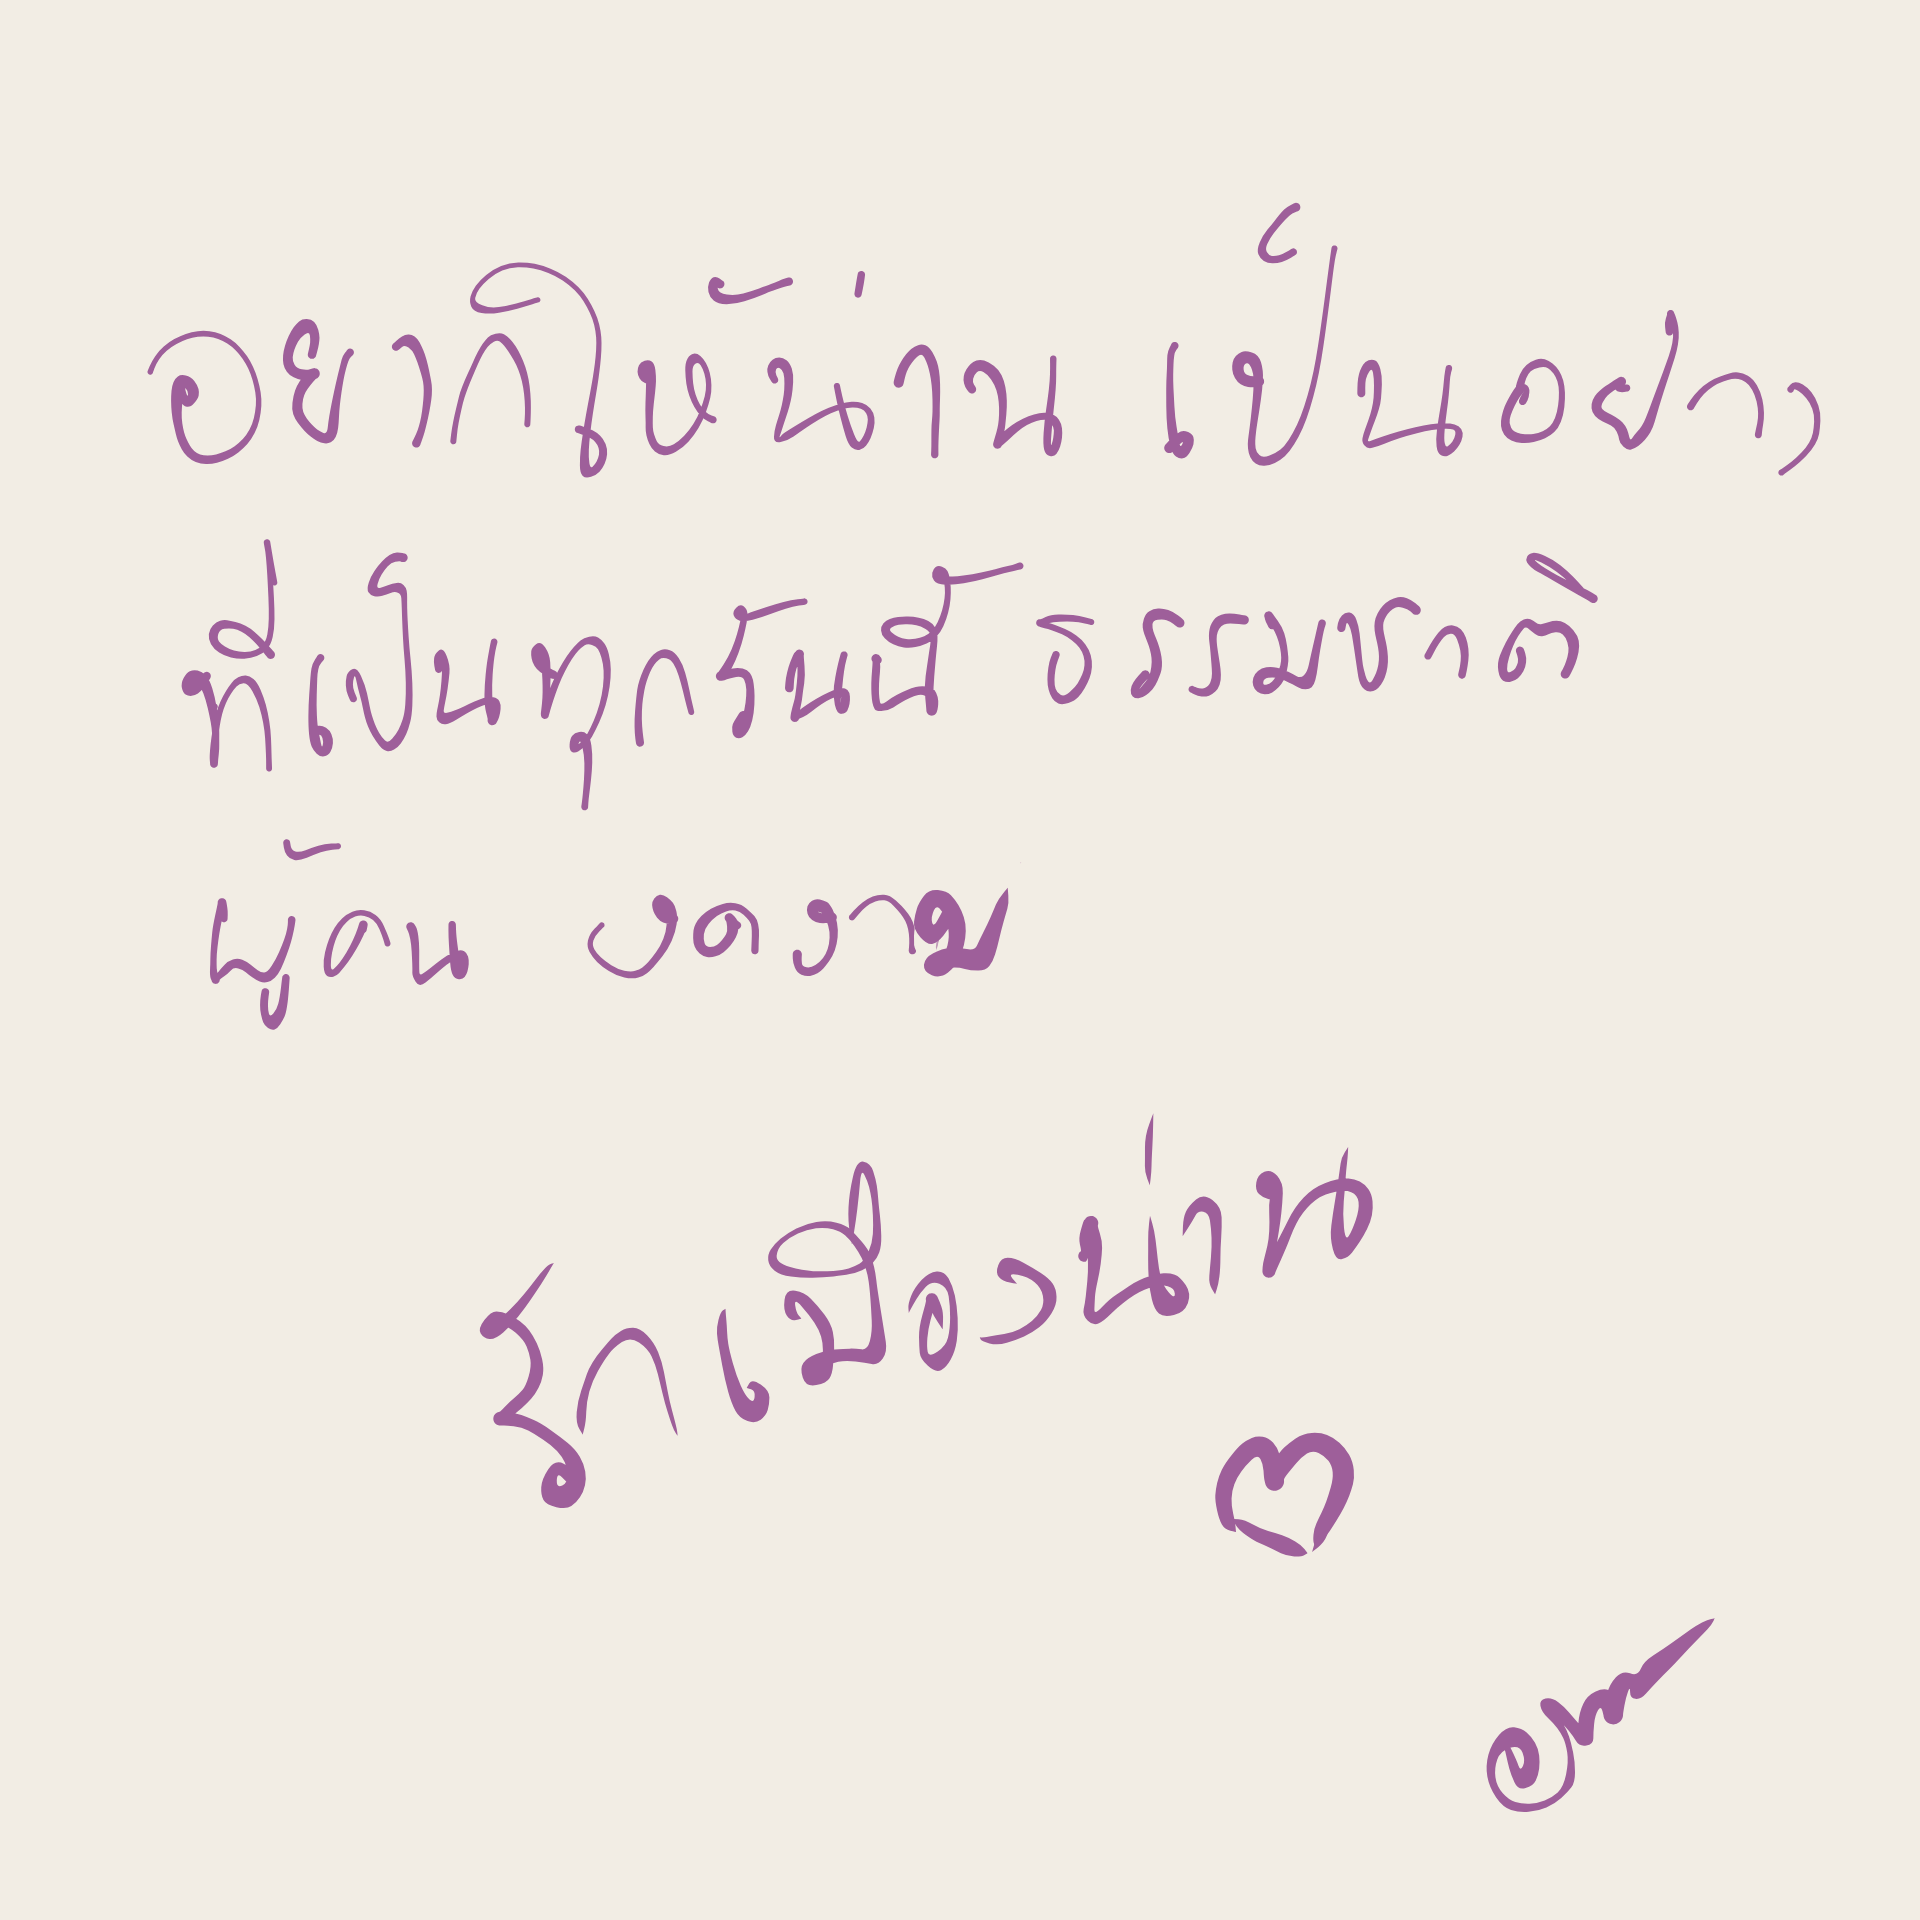 อยากให้น่าน เป็นอย่าง
ที่เป็นทุกวันนี้ ธรรมชาติ
ผู้คน งดงาม
รักเมืองน่าน